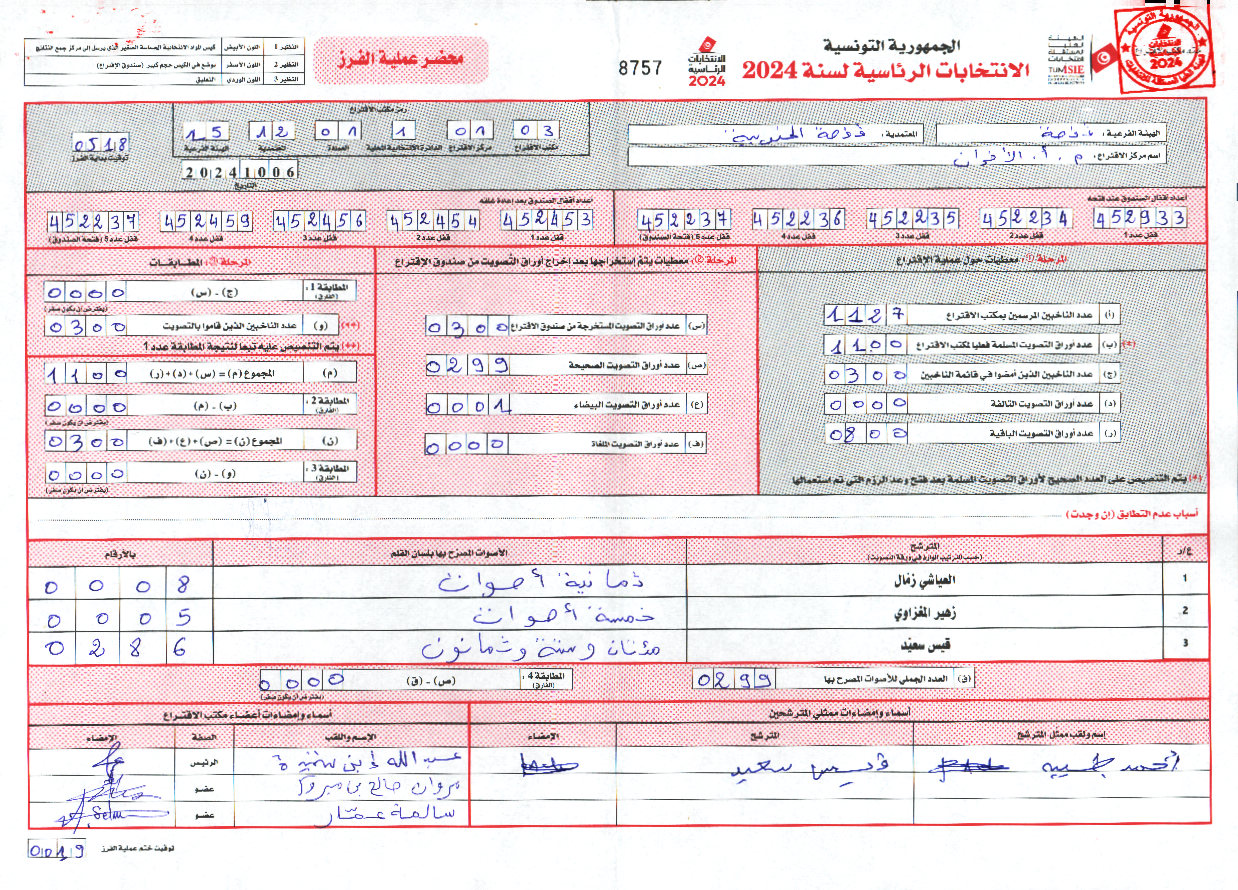 الجمهورية التونسية
الانتخابات الرئاسية لسنة 2024
الانتخابات الرئاسية 2024
8757
محضر عملية الفرز
النظير 1 اللون الأبيض كيس المواد الانتخابية الحساسة الصغير الذي يرسل إلى مركز جمع النتائج
النظير 2 اللون الأصفر يوضع في الكيس حجم كبير (صندوق الإقتراع)
النظير 3 اللون الوردي التعليق
الهيئة الفرعية: قفصة
المعتمدية: قفصة الجنوبية
اسم مركز الاقتراع: م. أ. الأقران
رمز مكتب الاقتراع
03 01 1 01 12 15
مكتب الاقتراع مركز الاقتراع الدائرة الانتخابية المحلية العمدة المعتمدية الهيئة الفرعية
20241006
التاريخ
0518
توقيت بداية الفرز
أعداد أقفال الصندوق عند فتحه
452933 452234 452235 452236 452237
قفل عدد 1 قفل عدد 2 قفل عدد 3 قفل عدد 4 قفل عدد 5 (فتحة الصندوق)
أعداد أقفال الصندوق بعد إعادة غلقه
452453 452454 452456 452459 452237
قفل عدد 1 قفل عدد 2 قفل عدد 3 قفل عدد 4 قفل عدد 5 (فتحة الصندوق)
المرحلة ①: معطيات حول عملية الإقتراع
(أ) عدد الناخبين المرسمين بمكتب الاقتراع 1127
(*) (ب) عدد أوراق التصويت المسلمة فعليا لمكتب الاقتراع 1100
(ج) عدد الناخبين الذين أمضوا في قائمة الناخبين 0300
(د) عدد أوراق التصويت التالفة 0000
(ر) عدد أوراق التصويت الباقية 0800
(*) يتم التنصيص على العدد الصحيح لأوراق التصويت المسلمة بعد فتح وعد الرزم التي تم استعمالها
المرحلة ②: معطيات يتم إستخراجها بعد إخراج أوراق التصويت من صندوق الإقتراع
(س) عدد أوراق التصويت المستخرجة من صندوق الاقتراع 0300
(ص) عدد أوراق التصويت الصحيحة 0299
(ع) عدد أوراق التصويت البيضاء 0001
(ف) عدد أوراق التصويت الملغاة 0000
المرحلة ③: المطابقات
المطابقة 1: (الفارق) (ج) - (س) 0000
(يفترض أن يكون صفر)
(**) (و) عدد الناخبين الذين قاموا بالتصويت 0300
(**) يتم التنصيص عليه تبعا لنتيجة المطابقة عدد 1
(م) المجموع (م) = (س) + (د) + (ر) 1100
المطابقة 2: (الفارق) (ب) - (م) 0000
(يفترض أن يكون صفر)
(ن) المجموع (ن) = (ص) + (ع) + (ف) 0300
المطابقة 3: (الفارق) (و) - (ن) 0000
(يفترض أن يكون صفر)
أسباب عدم التطابق (إن وجدت)
ع/ر المترشح (حسب الترتيب الوارد في ورقة التصويت) الأصوات المصرح بها بلسان القلم بالأرقام
1 العياشي زمال ثمانية أصوات 0008
2 زهير المغزاوي خمسة أصوات 0005
3 قيس سعيّد مئتان وستة وثمانون 0286
(ق) العدد الجملي للأصوات المصرح بها 0299
المطابقة 4: (الفارق) (ص) - (ق) 0000
(يفترض أن يكون صفر)
أسماء وإمضاءات ممثلي المترشحين
إسم ولقب ممثل المترشح المترشح الإمضاء
قيس سعيد
أسماء وإمضاءات أعضاء مكتب الاقتراع
الإسم واللقب الصفة الإمضاء
الرئيس
مروان صالح بن مبروك عضو
سالمة عمّار عضو
توقيت ختم عملية الفرز
0019